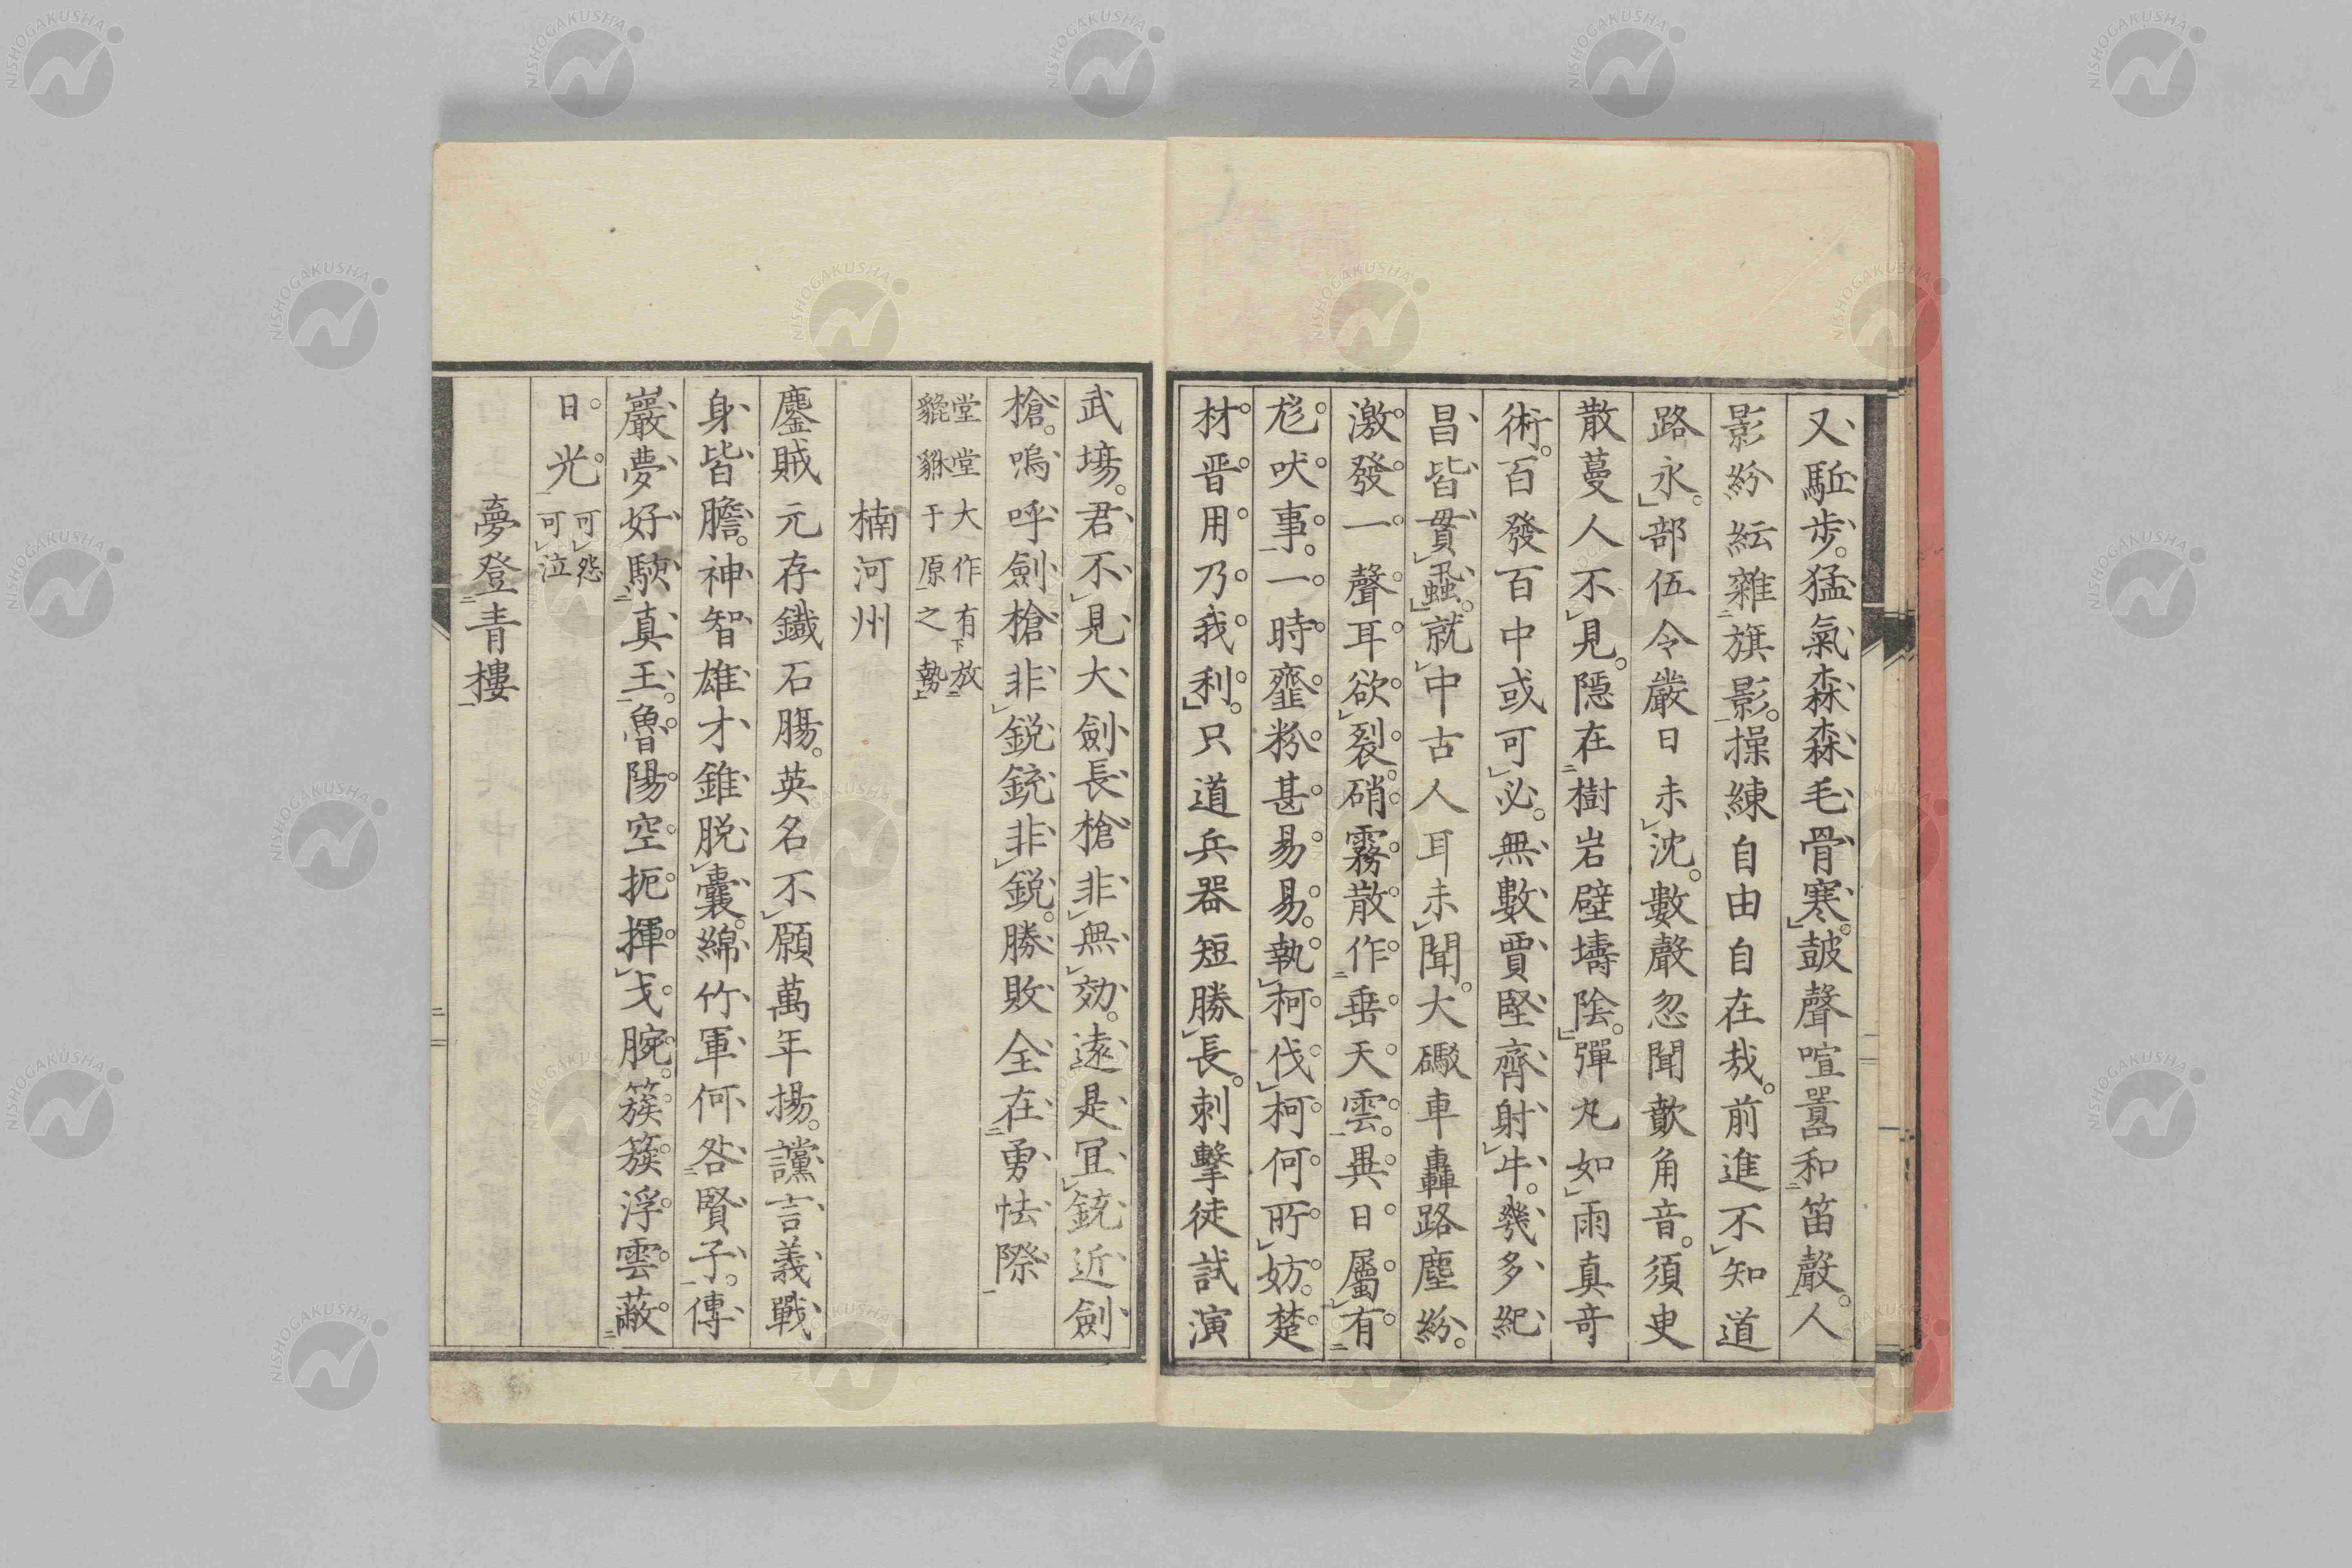 又駈步。猛氣森森毛骨寒。鼓聲喧囂和笛聲。人
影紛紜雜旗影。操練自由自在哉。前進不知道
路永。部伍令嚴日未沈。數聲忽聞歕角音。須臾
散蔓人不見。隱在樹岩壁壔陰。彈丸如雨真奇
術。百發百中或可必。無數賈堅齊射牛。幾多紀
昌皆貫虱。就中古人耳未聞。大礮車轟路塵紛。
激發一聲耳欲裂。硝霧散作垂天雲。異日屬有
尨吠事。一時虀粉甚易易。執柯伐柯何所妨。楚
材晋用乃我利。只道兵器短勝長。刺擊徒試演
武場。君不見大劍長槍非無効。遠是宜銃近劍
槍。嗚呼劍槍非銳銃非銳。勝敗全在勇怯際
堂堂大作有放
貔貅于原之勢
楠河州
鏖賊元存鐵石腸。英名不願萬年揚。讜言義戰
身皆膽。神智雄才錐脫囊。綿竹軍何咎賢子。傳
巖夢好駃真王。魯陽空扼揮戈腕。簇簇浮雲蔽
日光 可怨
可泣
夢登青樓
NISHOGAKUSHA